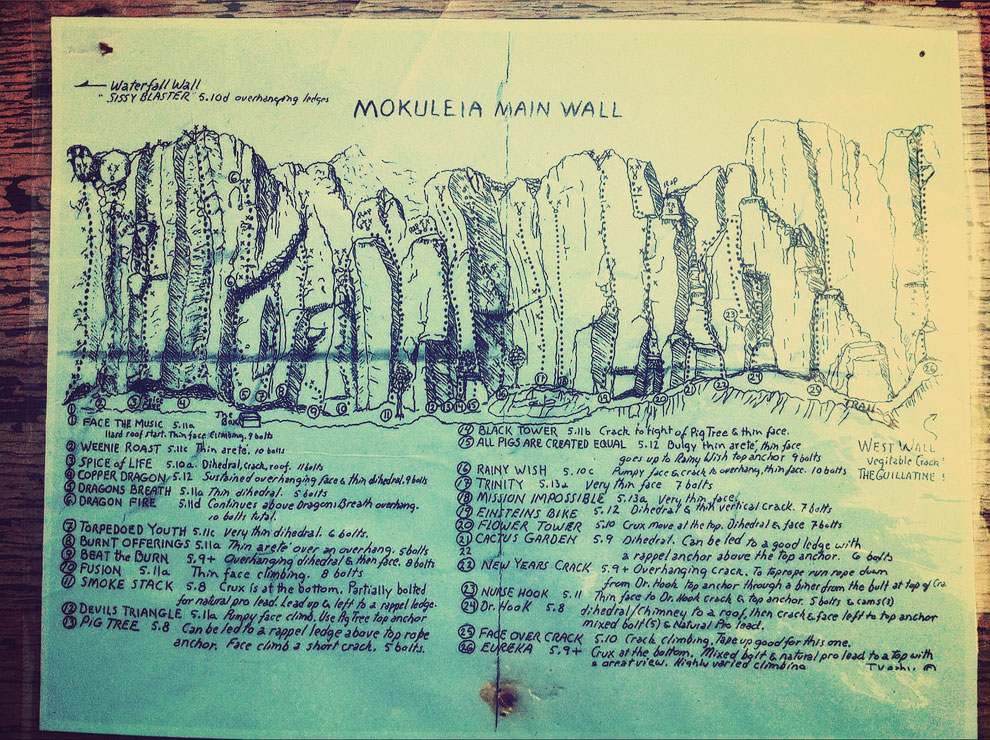 Waterfall Wall
"SISSY BLASTER" 5.10d overhanging ledges
MOKULEIA MAIN WALL
Rap
The Box
TRAIL
1 FACE THE MUSIC 5.11a
Hard roof start. Thin face climbing. 9 bolts
2 WEENIE ROAST 5.11c Thin arete. 10 bolts
3 SPICE of LIFE 5.10a. Dihedral, crack, roof. 11 bolts
4 COPPER DRAGON 5.12 Sustained overhanging face & thin dihedral. 9 bolts
5 DRAGONS BREATH 5.11a Thin dihedral. 5 bolts
6 DRAGON FIRE 5.11d Continues above Dragons Breath overhang.
10 bolts total.
7 TORPEDOED YOUTH 5.11c Very thin dihedral. 6 bolts.
8 BURNT OFFERINGS 5.11a Thin arete' over an overhang. 5 bolts
9 BEAT the BURN 5.9+ Overhanging dihedral & thin face. 8 bolts
10 FUSION 5.11a Thin face climbing. 8 bolts
11 SMOKE STACK 5.8 Crux is at the bottom. Partially bolted
for natural pro lead. Lead up & left to a rappel ledge.
12 DEVILS TRIANGLE 5.11a Pumpy face climb. Use Pig Tree top anchor
13 PIG TREE 5.8 Can be led to a rappel ledge above top rope
anchor. Face climb a short crack. 5 bolts.
14 BLACK TOWER 5.11b Crack to right of Pig Tree & thin face.
15 ALL PIGS ARE CREATED EQUAL 5.12 Bulgy thin arete', thin face
goes up to Rainy Wish top anchor 9 bolts
16 RAINY WISH 5.10c Pumpy face & crack to overhang, thin face. 10 bolts
17 TRINITY 5.13a Very thin face 7 bolts
18 MISSION IMPOSSIBLE 5.13a Very thin face.
19 EINSTEINS BIKE 5.12 Dihedral & thin vertical crack. 7 bolts
20 FLOWER TOWER 5.10 Crux move at the top. Dihedral & face 7 bolts
21 CACTUS GARDEN 5.9 Dihedral. Can be led to a good ledge with
22 a rappel anchor above the top anchor. 6 bolts
22 NEW YEARS CRACK 5.9+ Overhanging Crack. To toprope run rope down
from Dr. Hook top anchor through a biner from the bolt at top of Cra
23 NURSE HOOK 5.11 Thin face to Dr. Hook crack & top anchor. 5 bolts & cams(2)
24 Dr. HOOK 5.8 dihedral/chimney to a roof, then crack & face left to top anchor
mixed bolt(s) & Natural Pro lead.
25 FACE OVER CRACK 5.10 Crack climbing. Tape up good for this one.
26 EUREKA 5.9+ Crux at the bottom. Mixed bolt & natural pro lead to a Top with
a great view. Highly varied climbing
WEST WALL
Vegitable Crack
THE GUILLATINE